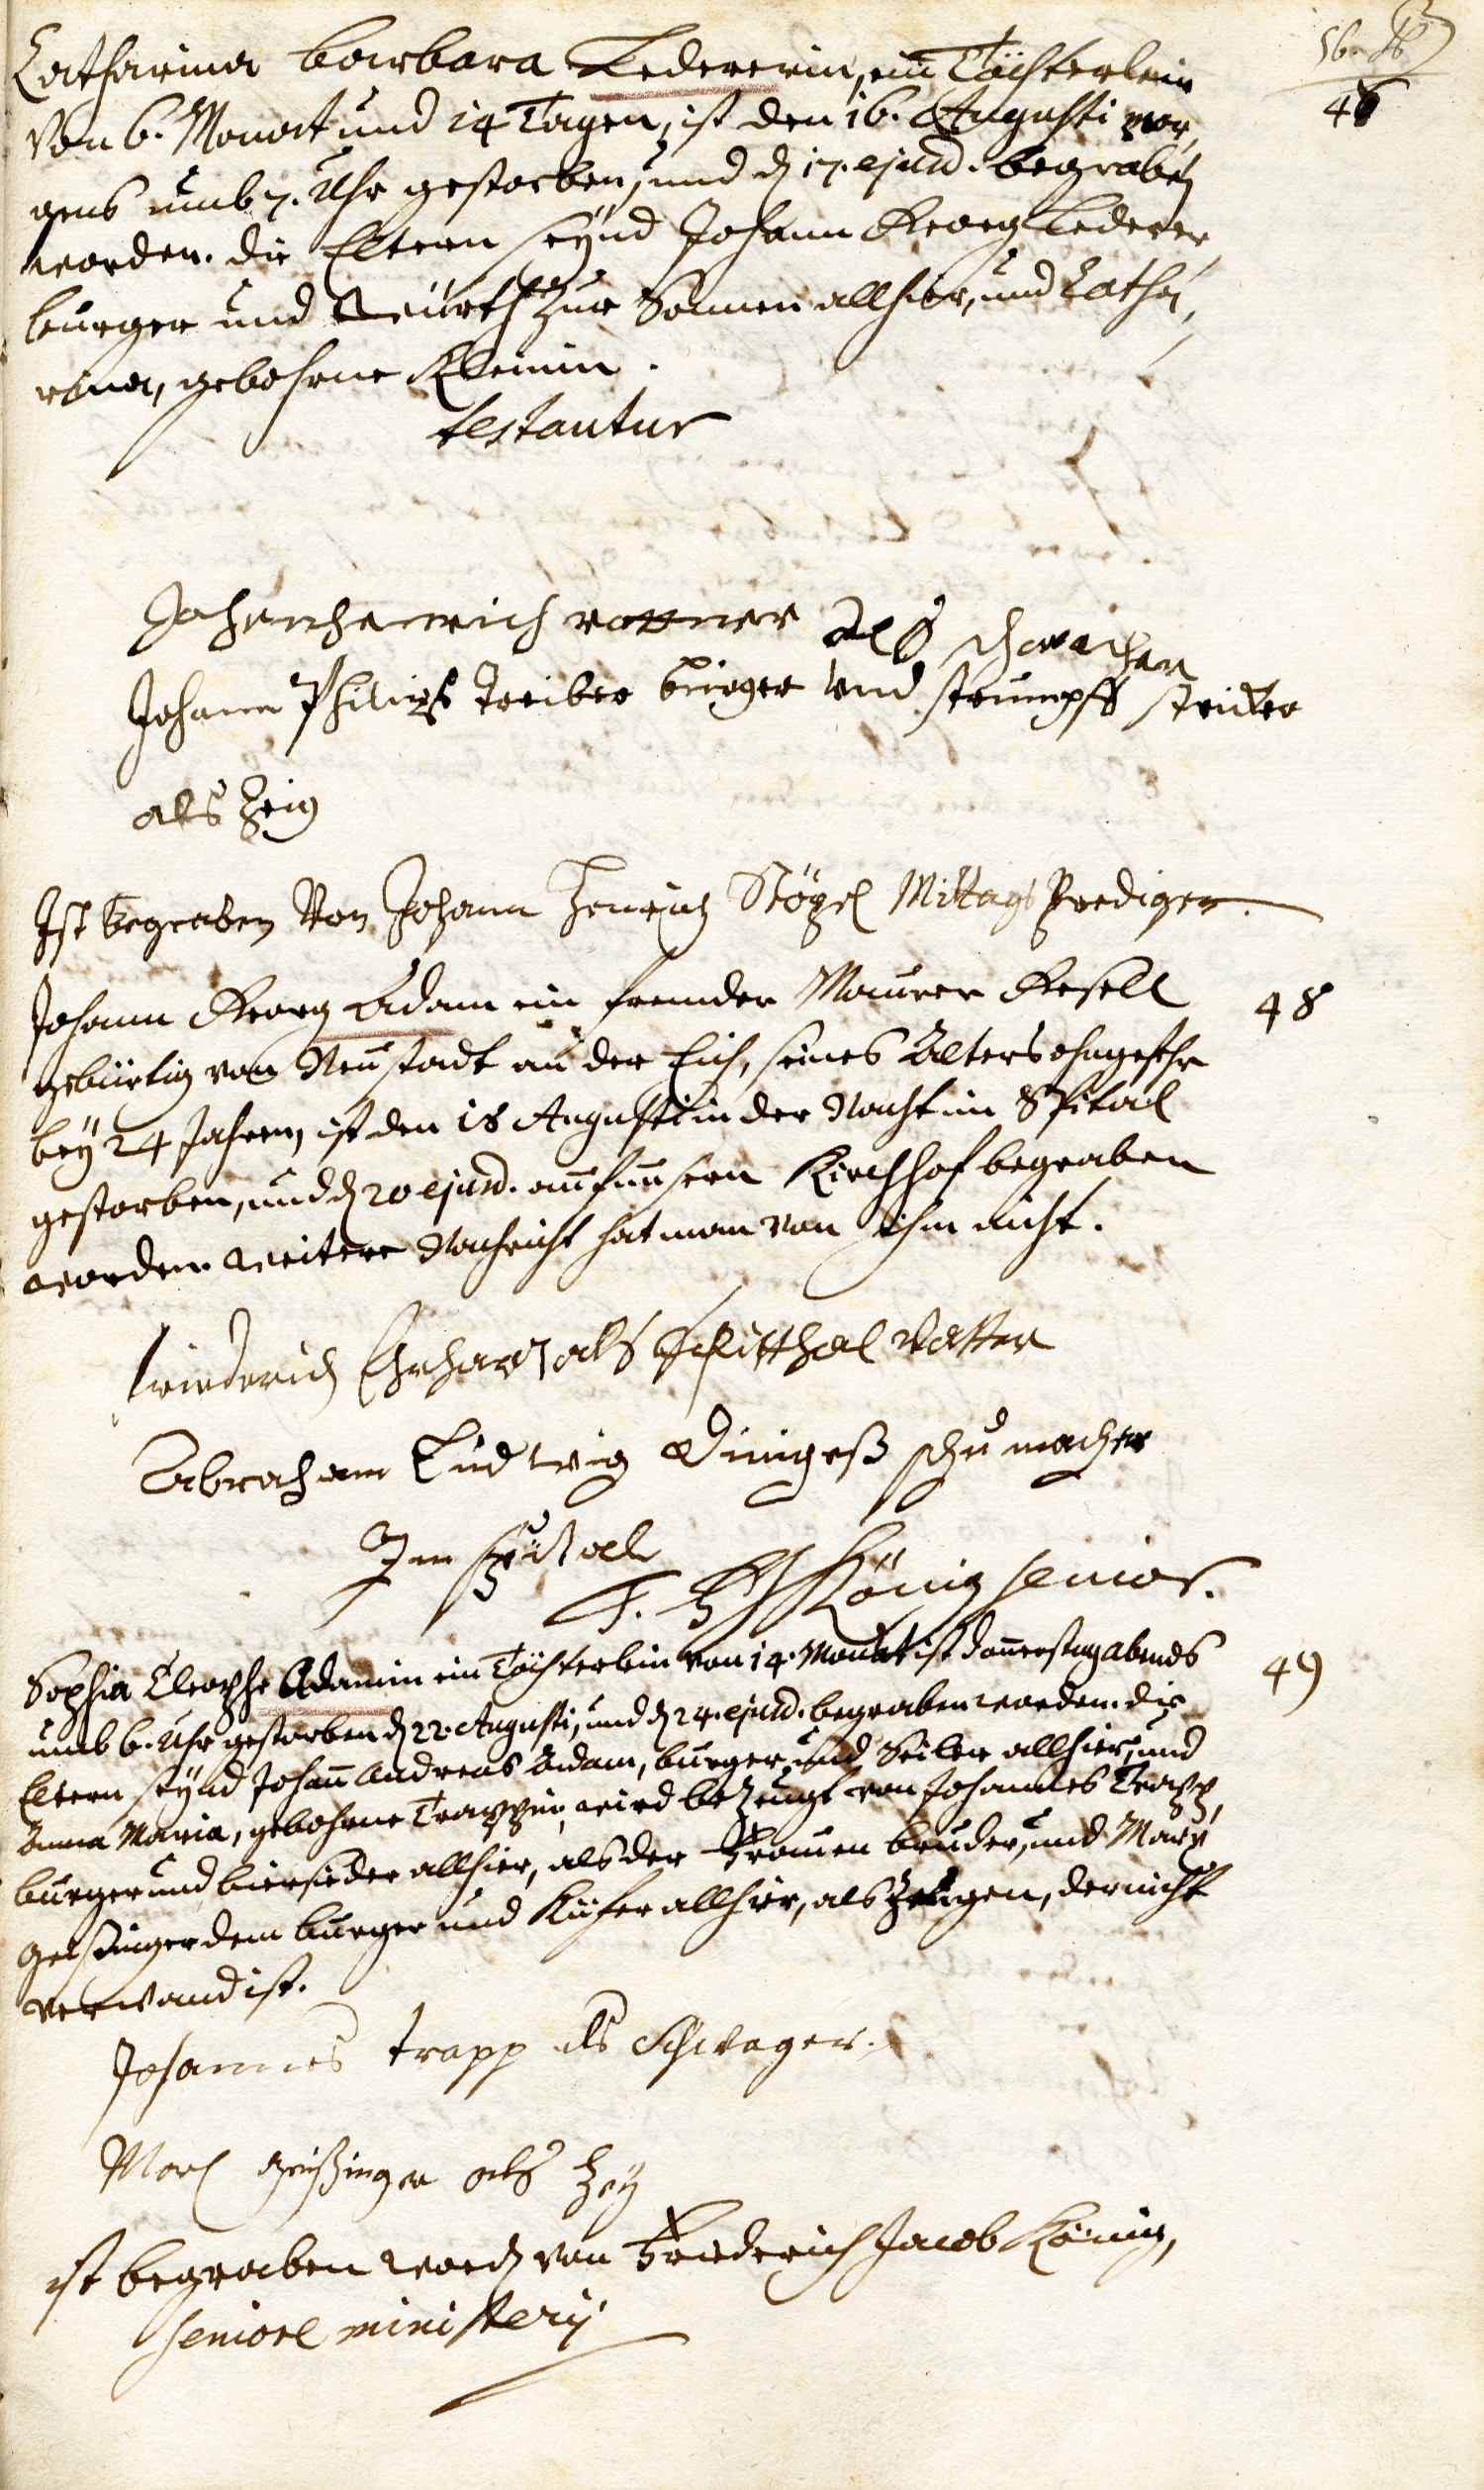 46
Catharina Barbara Ledererin, ein Töchterlein
von 6. Monat und 14 Tagen, ist den 16. Augusti mor,
gens umb 7. Uhr gestorben, und d 17. ejusd. begraben
worden. die Eltern seynd Johann Georg Lederer,
burger und Würth zur Sonnen allhier, und Catha,
rina, gebohrne Kleinin.
testantur
als
Johann Philips Treiber burger und strumpff stricker
als Zeig
Ist begraben Von Johann Henrich Mittags Prediger.
Johann Georg Adam ein frembder Maurer Gesell 48
gebürtig von Neustadt an der Eich, seines Alters ohngefehr
bey 24 Jahren, ist den 18 Augusti in der Nacht im Spital
gestorben, und d 20 ejusd. auf unsern Kirchhof begraben
worden. weitere Nachricht hat man von ihm nicht.
friederich als Spitthal Vatter
Abraham Ludwig schumacher
Im spital
König senior.
Sophia Cleophe Adamin ein Töchterlein von 14. Monat ist donnerstag abends 49
umb 6. Uhr gestorben d 22. Augusti, und d 24. ejusd. begraben worden. die
Eltern seynd Johann Andreas Adam, burger und Seiler allhier, und
Anna Maria, gebohrne Trappin, wird bezeugt von Johannes Trapp,
burger und biersieder allhier, als der Frauen bruder, und Marx
Geisinger dem burger und Küfer allhier, als Zeugen, der nicht
verwand ist.
Johannes Trapp als Schwager.
Marx Geißinger als Zeg
ist begraben word von Friederich Jacob König,
seniore ministerij